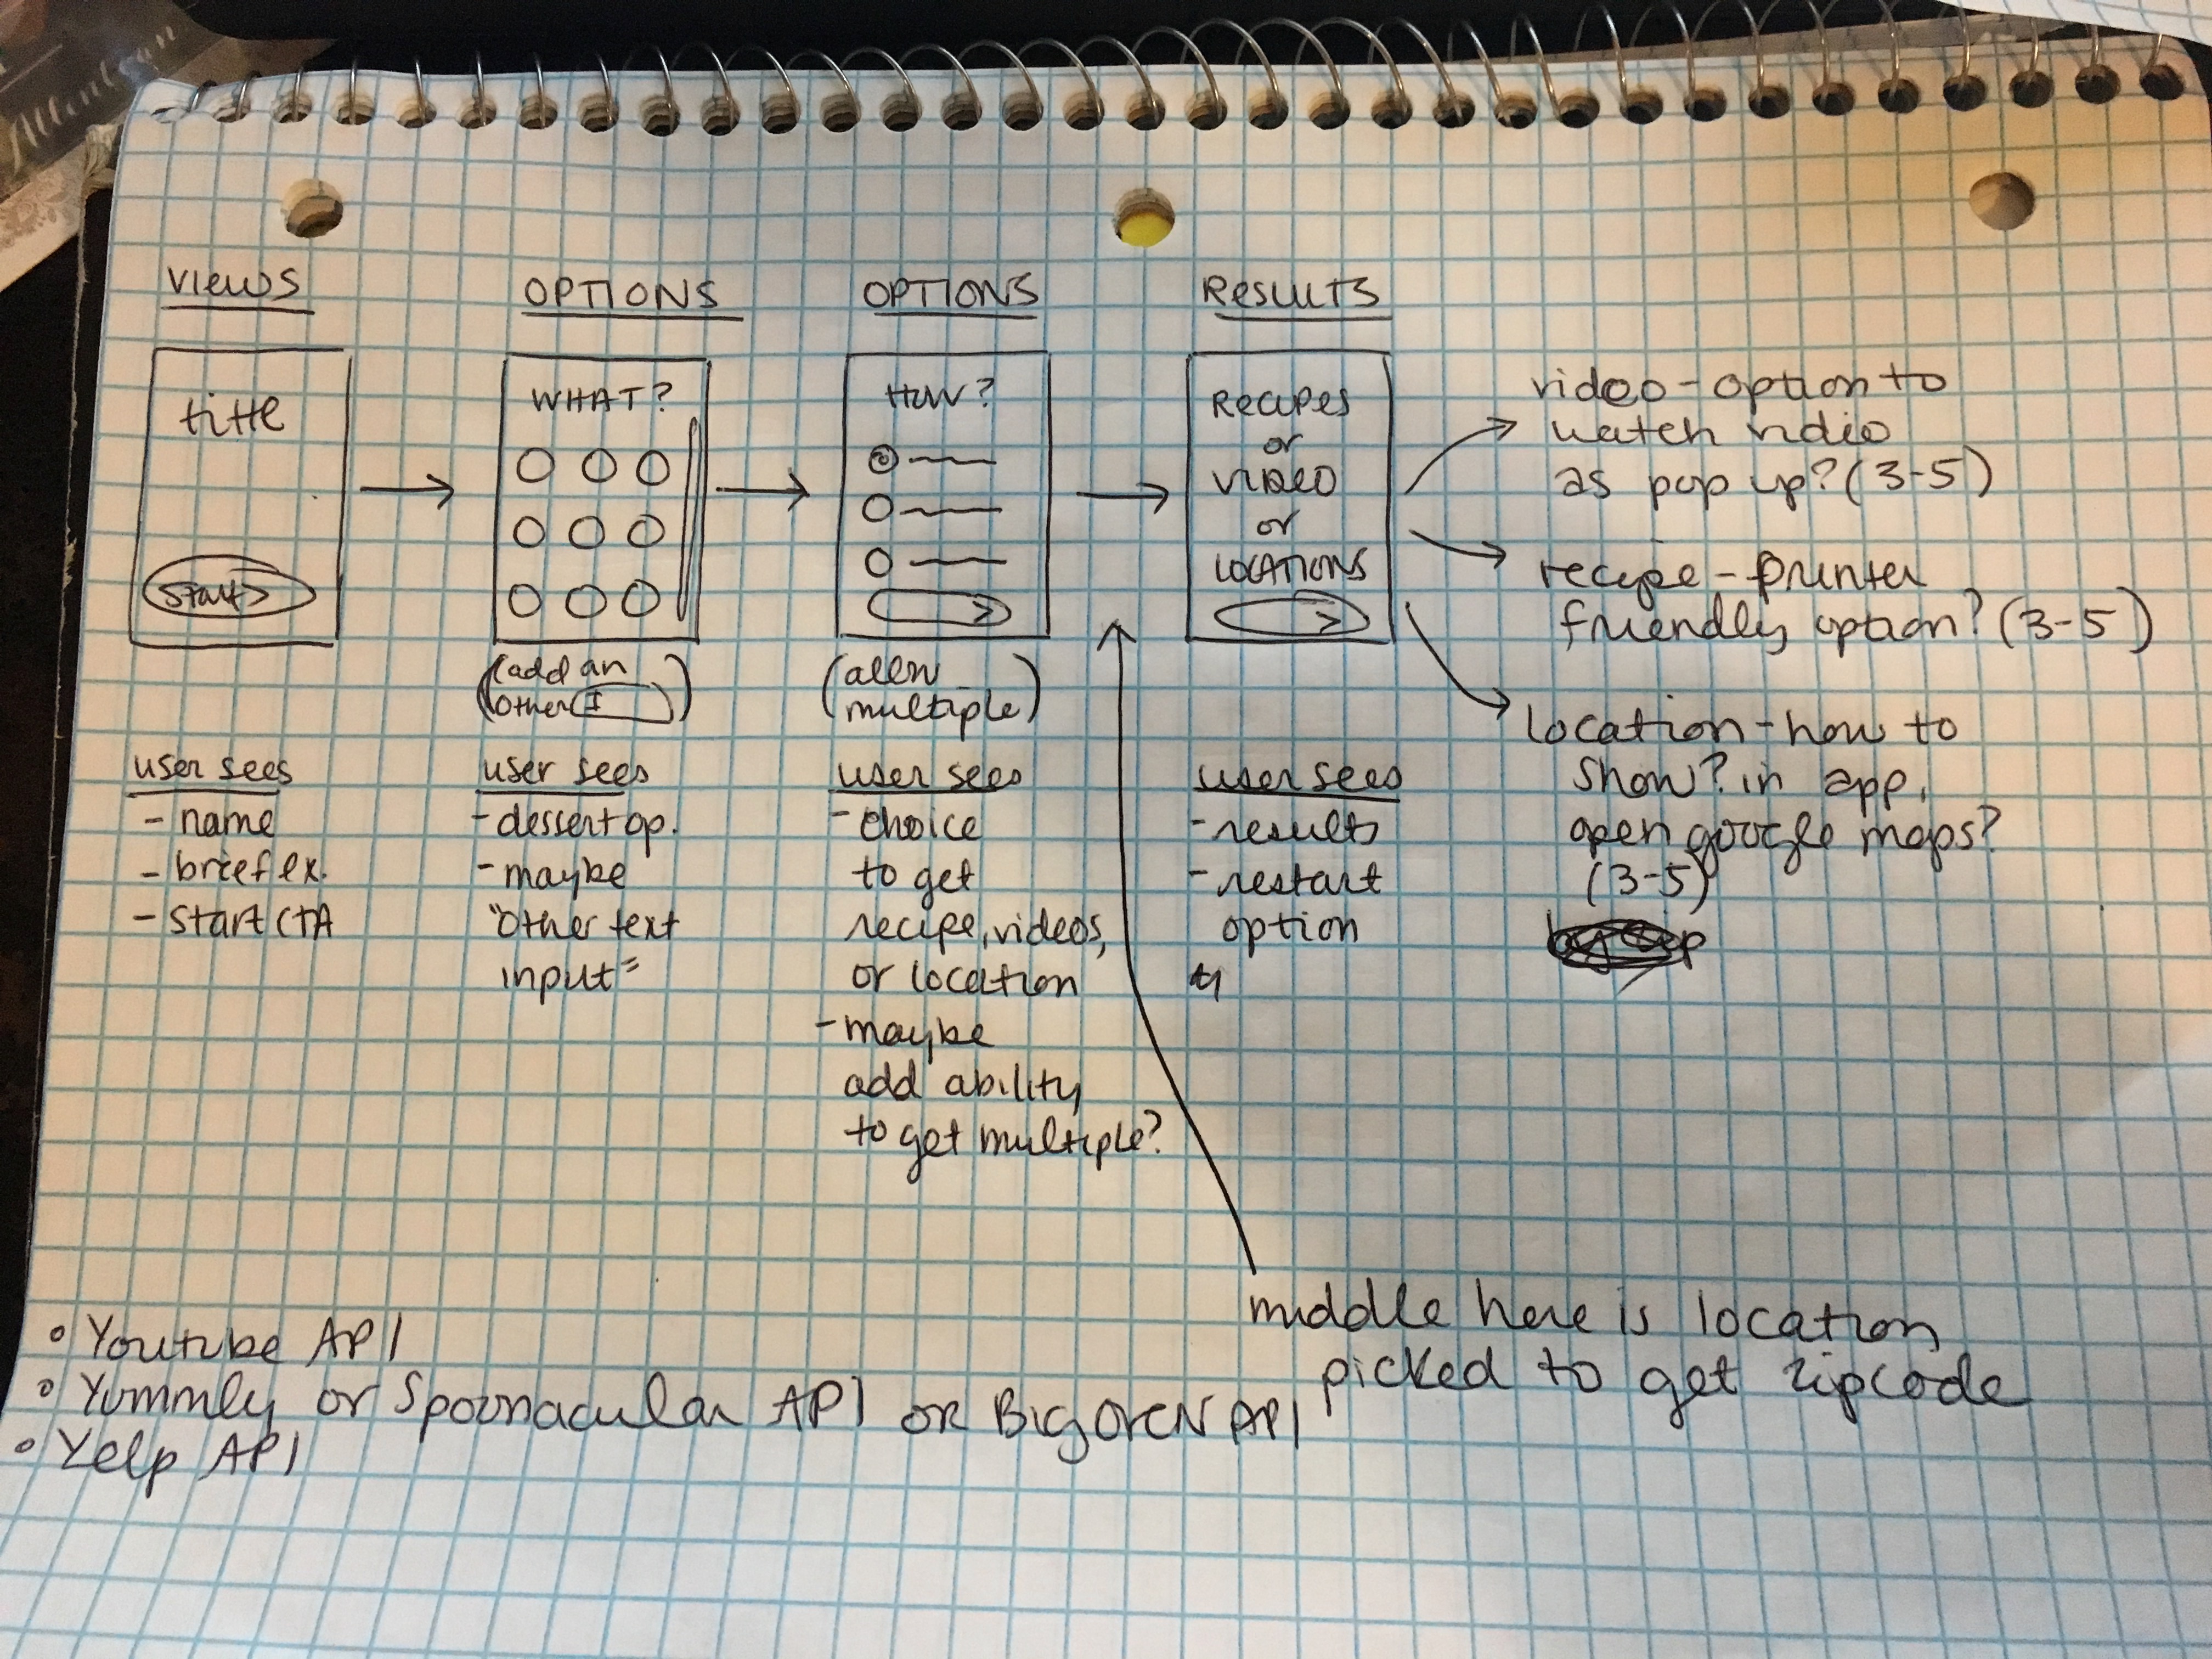 VIEWS
title
Start >
user sees
- name
- brief ex.
- start CTA
OPTIONS
WHAT?
(add an
other I)
user sees
- dessert op.
- maybe
"other text
input"
OPTIONS
HOW?
>
(allow
multiple)
user sees
- choice
to get
recipe, videos,
or location
- maybe
add ability
to get multiple?
RESULTS
RECIPES
or
VIDEO
or
LOCATIONS
>
user sees
- results
- restart
option
video - option to
watch vidio
as pop up? (3-5)
recipe - printer
friendly option? (3-5)
location - how to
show? in app,
open google maps?
(3-5)
middle here is location
picked to get zipcode
• Youtube API
• Yummly or Spoonacular API or BigOven API
• Yelp API